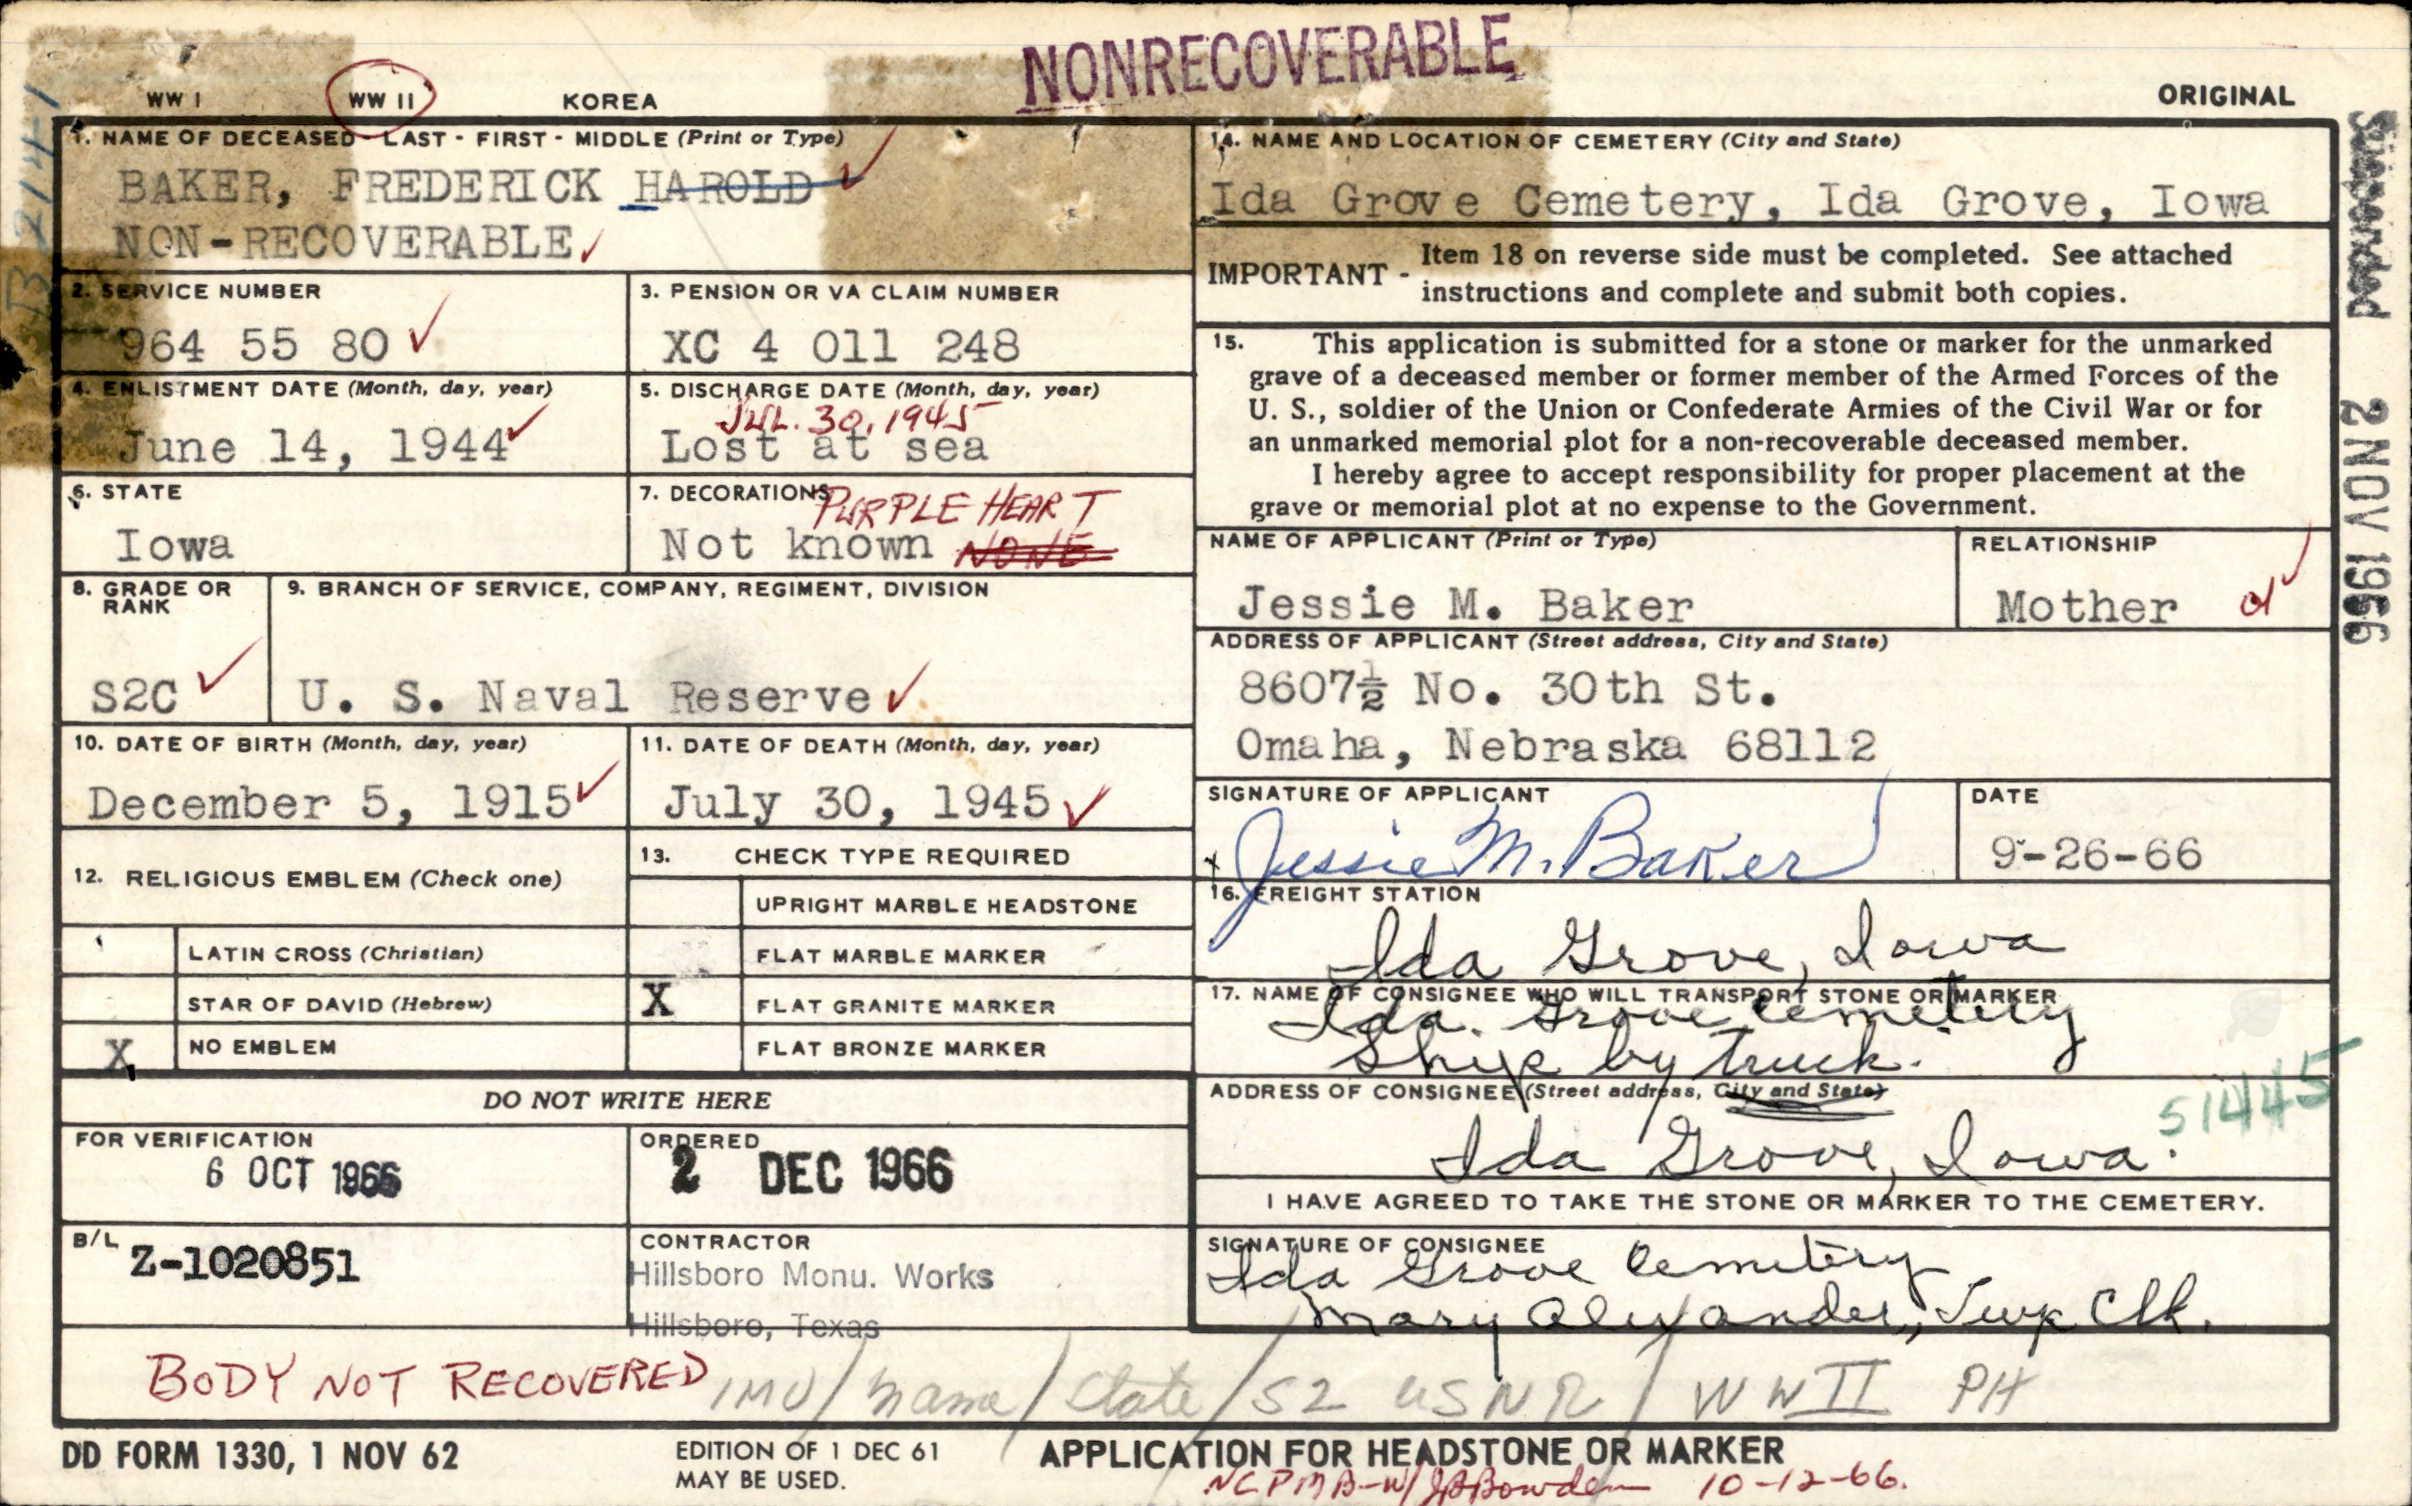 NONRECOVERABLE
WW I WW II KOREA
ORIGINAL
B 214-1
1. NAME OF DECEASED - LAST - FIRST - MIDDLE (Print or Type)
BAKER, FREDERICK HAROLD
NON-RECOVERABLE
2. SERVICE NUMBER
964 55 80
3. PENSION OR VA CLAIM NUMBER
XC 4 011 248
4. ENLISTMENT DATE (Month, day, year)
June 14, 1944
5. DISCHARGE DATE (Month, day, year)
JUL. 30, 1945
Lost at sea
6. STATE
Iowa
7. DECORATIONS
PURPLE HEART
Not known NONE
8. GRADE OR
RANK
S2C
9. BRANCH OF SERVICE, COMPANY, REGIMENT, DIVISION
U. S. Naval Reserve
10. DATE OF BIRTH (Month, day, year)
December 5, 1915
11. DATE OF DEATH (Month, day, year)
July 30, 1945
12. RELIGIOUS EMBLEM (Check one)
LATIN CROSS (Christian)
STAR OF DAVID (Hebrew)
X NO EMBLEM
13. CHECK TYPE REQUIRED
UPRIGHT MARBLE HEADSTONE
FLAT MARBLE MARKER
X FLAT GRANITE MARKER
FLAT BRONZE MARKER
DO NOT WRITE HERE
FOR VERIFICATION
6 OCT 1966
ORDERED
2 DEC 1966
B/L
Z-1020851
CONTRACTOR
Hillsboro Monu. Works
Hillsboro, Texas
14. NAME AND LOCATION OF CEMETERY (City and State)
Ida Grove Cemetery, Ida Grove, Iowa
IMPORTANT - Item 18 on reverse side must be completed. See attached
instructions and complete and submit both copies.
15. This application is submitted for a stone or marker for the unmarked
grave of a deceased member or former member of the Armed Forces of the
U. S., soldier of the Union or Confederate Armies of the Civil War or for
an unmarked memorial plot for a non-recoverable deceased member.
I hereby agree to accept responsibility for proper placement at the
grave or memorial plot at no expense to the Government.
NAME OF APPLICANT (Print or Type)
Jessie M. Baker
RELATIONSHIP
Mother
ADDRESS OF APPLICANT (Street address, City and State)
8607½ No. 30th St.
Omaha, Nebraska 68112
SIGNATURE OF APPLICANT
x Jessie M. Baker
DATE
9-26-66
16. FREIGHT STATION
Ida Grove, Iowa
17. NAME OF CONSIGNEE WHO WILL TRANSPORT STONE OR MARKER
Ida Grove Cemetery
Ship by truck.
ADDRESS OF CONSIGNEE (Street address, City and State)
51445
Ida Grove, Iowa.
I HAVE AGREED TO TAKE THE STONE OR MARKER TO THE CEMETERY.
SIGNATURE OF CONSIGNEE
Ida Grove Cemetery
Mary Alexander, Twp Clk.
Suspended 2 NOV 1966
BODY NOT RECOVERED IMO / Name / State / S2 USNR / WW II PH
DD FORM 1330, 1 NOV 62
EDITION OF 1 DEC 61
MAY BE USED.
APPLICATION FOR HEADSTONE OR MARKER
10-12-66.